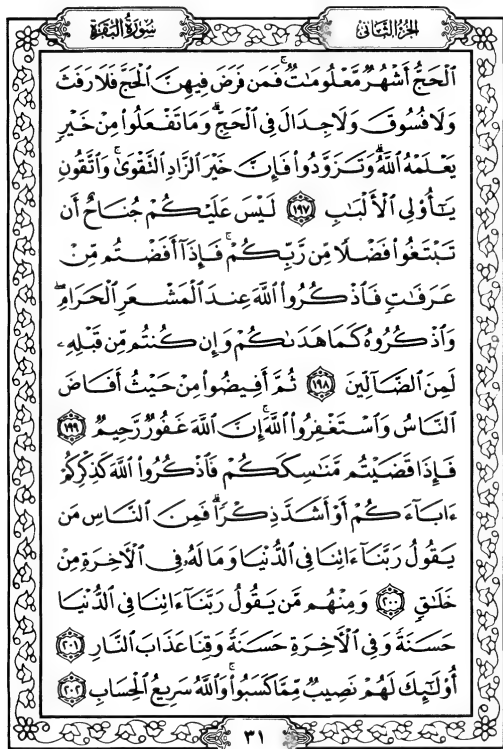 الجزء الثاني
سورة البقرة
ٱلْحَجُّ أَشْهُرٌ مَّعْلُومَٰتٌ ۚ فَمَن فَرَضَ فِيهِنَّ ٱلْحَجَّ فَلَا رَفَثَ
وَلَا فُسُوقَ وَلَا جِدَالَ فِى ٱلْحَجِّ ۗ وَمَا تَفْعَلُوا۟ مِنْ خَيْرٍ
يَعْلَمْهُ ٱللَّهُ ۗ وَتَزَوَّدُوا۟ فَإِنَّ خَيْرَ ٱلزَّادِ ٱلتَّقْوَىٰ ۚ وَٱتَّقُونِ
يَٰٓأُو۟لِى ٱلْأَلْبَٰبِ ١٩٧ لَيْسَ عَلَيْكُمْ جُنَاحٌ أَن
تَبْتَغُوا۟ فَضْلًا مِّن رَّبِّكُمْ ۚ فَإِذَآ أَفَضْتُم مِّنْ
عَرَفَٰتٍ فَٱذْكُرُوا۟ ٱللَّهَ عِندَ ٱلْمَشْعَرِ ٱلْحَرَامِ ۖ
وَٱذْكُرُوهُ كَمَا هَدَىٰكُمْ وَإِن كُنتُم مِّن قَبْلِهِۦ
لَمِنَ ٱلضَّآلِّينَ ١٩٨ ثُمَّ أَفِيضُوا۟ مِنْ حَيْثُ أَفَاضَ
ٱلنَّاسُ وَٱسْتَغْفِرُوا۟ ٱللَّهَ ۚ إِنَّ ٱللَّهَ غَفُورٌ رَّحِيمٌ ١٩٩
فَإِذَا قَضَيْتُم مَّنَٰسِكَكُمْ فَٱذْكُرُوا۟ ٱللَّهَ كَذِكْرِكُمْ
ءَابَآءَكُمْ أَوْ أَشَدَّ ذِكْرًا ۗ فَمِنَ ٱلنَّاسِ مَن
يَقُولُ رَبَّنَآ ءَاتِنَا فِى ٱلدُّنْيَا وَمَا لَهُۥ فِى ٱلْأَخِرَةِ مِنْ
خَلَٰقٍ ٢٠٠ وَمِنْهُم مَّن يَقُولُ رَبَّنَآ ءَاتِنَا فِى ٱلدُّنْيَا
حَسَنَةً وَفِى ٱلْأَخِرَةِ حَسَنَةً وَقِنَا عَذَابَ ٱلنَّارِ ٢٠١
أُو۟لَٰٓئِكَ لَهُمْ نَصِيبٌ مِّمَّا كَسَبُوا۟ ۚ وَٱللَّهُ سَرِيعُ ٱلْحِسَابِ ٢٠٢
٣١